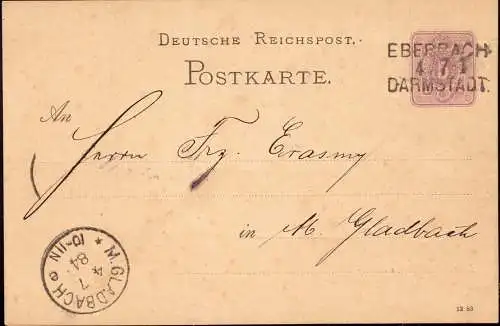 DEUTSCHE REICHSPOST.
POSTKARTE.
EBERBACH
4 7 1
DARMSTADT.
An
Herrn Frz. Erasmy
in M. Gladbach
* M. GLADBACH
10-11N
4
7
84
12 83